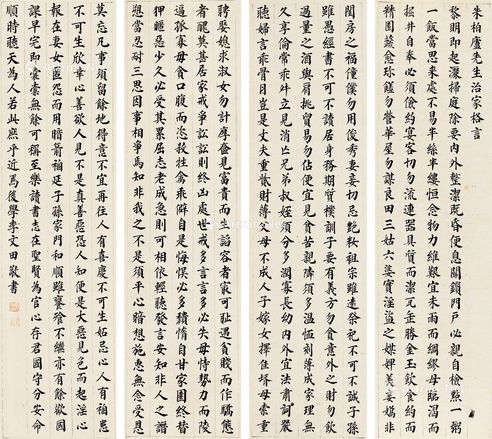 朱柏廬先生治家格言
黎明即起灑掃庭除要內外整潔既昏便息關鎖門戶必親自檢點一粥
一飯當思來處不易半絲半縷恒念物力維艱宜未雨而綢繆毋臨渴而
掘井自奉必須儉約宴客切勿流連器具質而潔瓦缶勝金玉飲食約而
精園蔬愈珍饈勿營華屋勿謀良田三姑六婆實淫盜之媒婢美妾嬌非
閨房之福僮僕勿用俊秀妻妾切忌艷妝祖宗雖遠祭祀不可不誠子孫
雖愚經書不可不讀居身務期質樸訓子要有義方勿貪意外之財勿飲
過量之酒與肩挑貿易勿佔便宜見貧苦親鄰須多溫恤刻薄成家理無
久享倫常乖舛立見消亡兄弟叔姪須分多潤寡長幼內外宜法肅詞嚴
聽婦言乖骨肉豈是丈夫重貲財薄父母不成人子嫁女擇佳婿毋索重
聘娶媳求淑女勿計厚奩見富貴而生諂容者最可恥遇貧賤而作驕態
者賤莫甚居家戒爭訟訟則終凶處世戒多言言多必失毋恃勢力而凌
逼孤寡毋貪口腹而恣殺牲禽乖僻自是悔悞必多頹惰自甘家園終替
狎暱惡少久必受其累屈志老成急則可相依輕聽發言安知非人之譖
愬當忍耐三思因事相爭焉知非我之不是須平心暗想施惠無念受恩
莫忘凡事須留餘地得意不宜再往人有喜慶不可生妬忌心人有禍患
不可生欣幸心善欲人見不是真善惡恐人知便是大惡見色而起淫心
報在妻女匿怨而用暗箭禍延子孫家門和順雖饔飱不繼亦有餘歡國
課早完即囊橐無餘可稱至樂讀書志在聖賢為官心存君國守分安命
順時聽天為人若此庶乎近焉後學李文田敬書